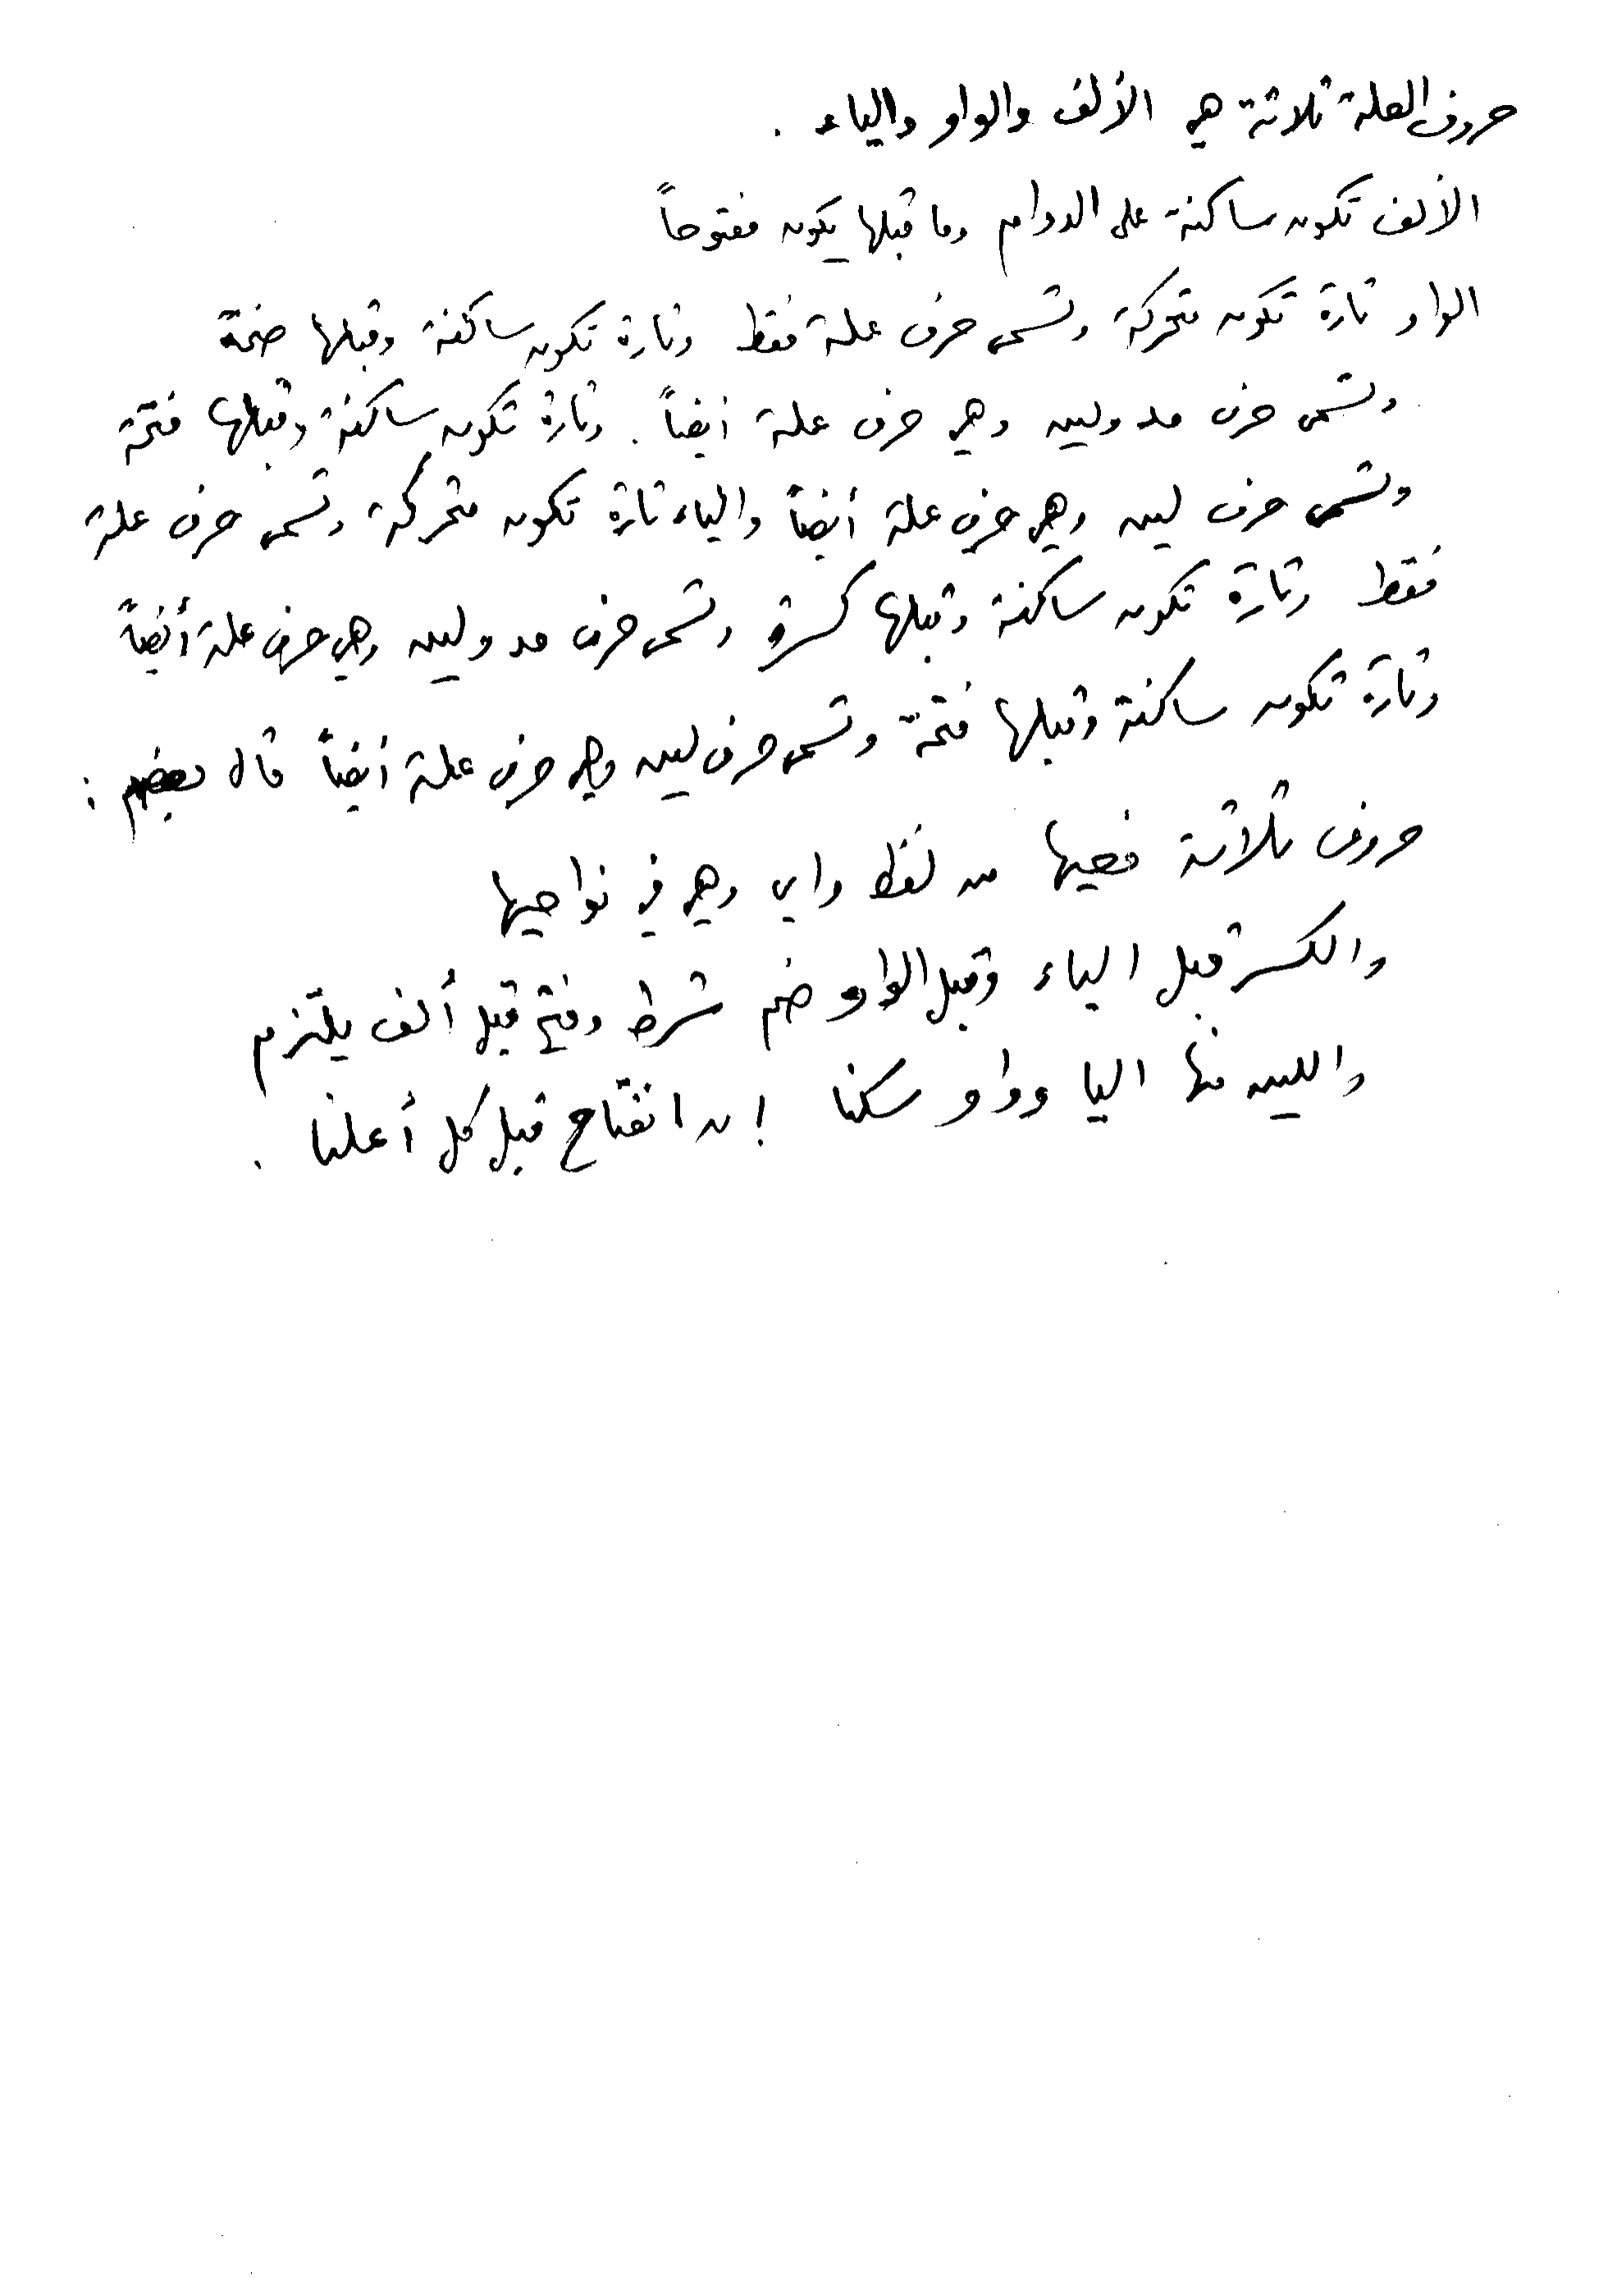 حروف العلة ثلاثة هي الألف والواو والياء .
الألف تكون ساكنة على الدوام وما قبلها يكون مفتوحاً
الواو تارة تكون متحركة وتسمى حرف علة فقط وتارة تكون ساكنة وقبلها ضمة
وتسمى حرف مد ولين وهي حرف علة أيضاً . وتارة تكون ساكنة وقبلها فتحة
وتسمى حرف لين وهي حرف علة أيضاً والياء تارة تكون متحركة وتسمى حرف علة
فقط وتارة تكون ساكنة وقبلها كسرة وتسمى حرف مد ولين وهي حرف علة أيضاً
وتارة تكون ساكنة وقبلها فتحة وتسمى حرف لين وهي حرف علة أيضاً قال بعضهم :
حروف ثلاثة فعيها من لفظ واي وهي في نواحيها
والكسر قبل الياء وقبل الواو ضم شرط وفتح قبل ألف يلتزم
واللين منها اليا وواو سكنا إن انفتاح قبل كل أعلنا .